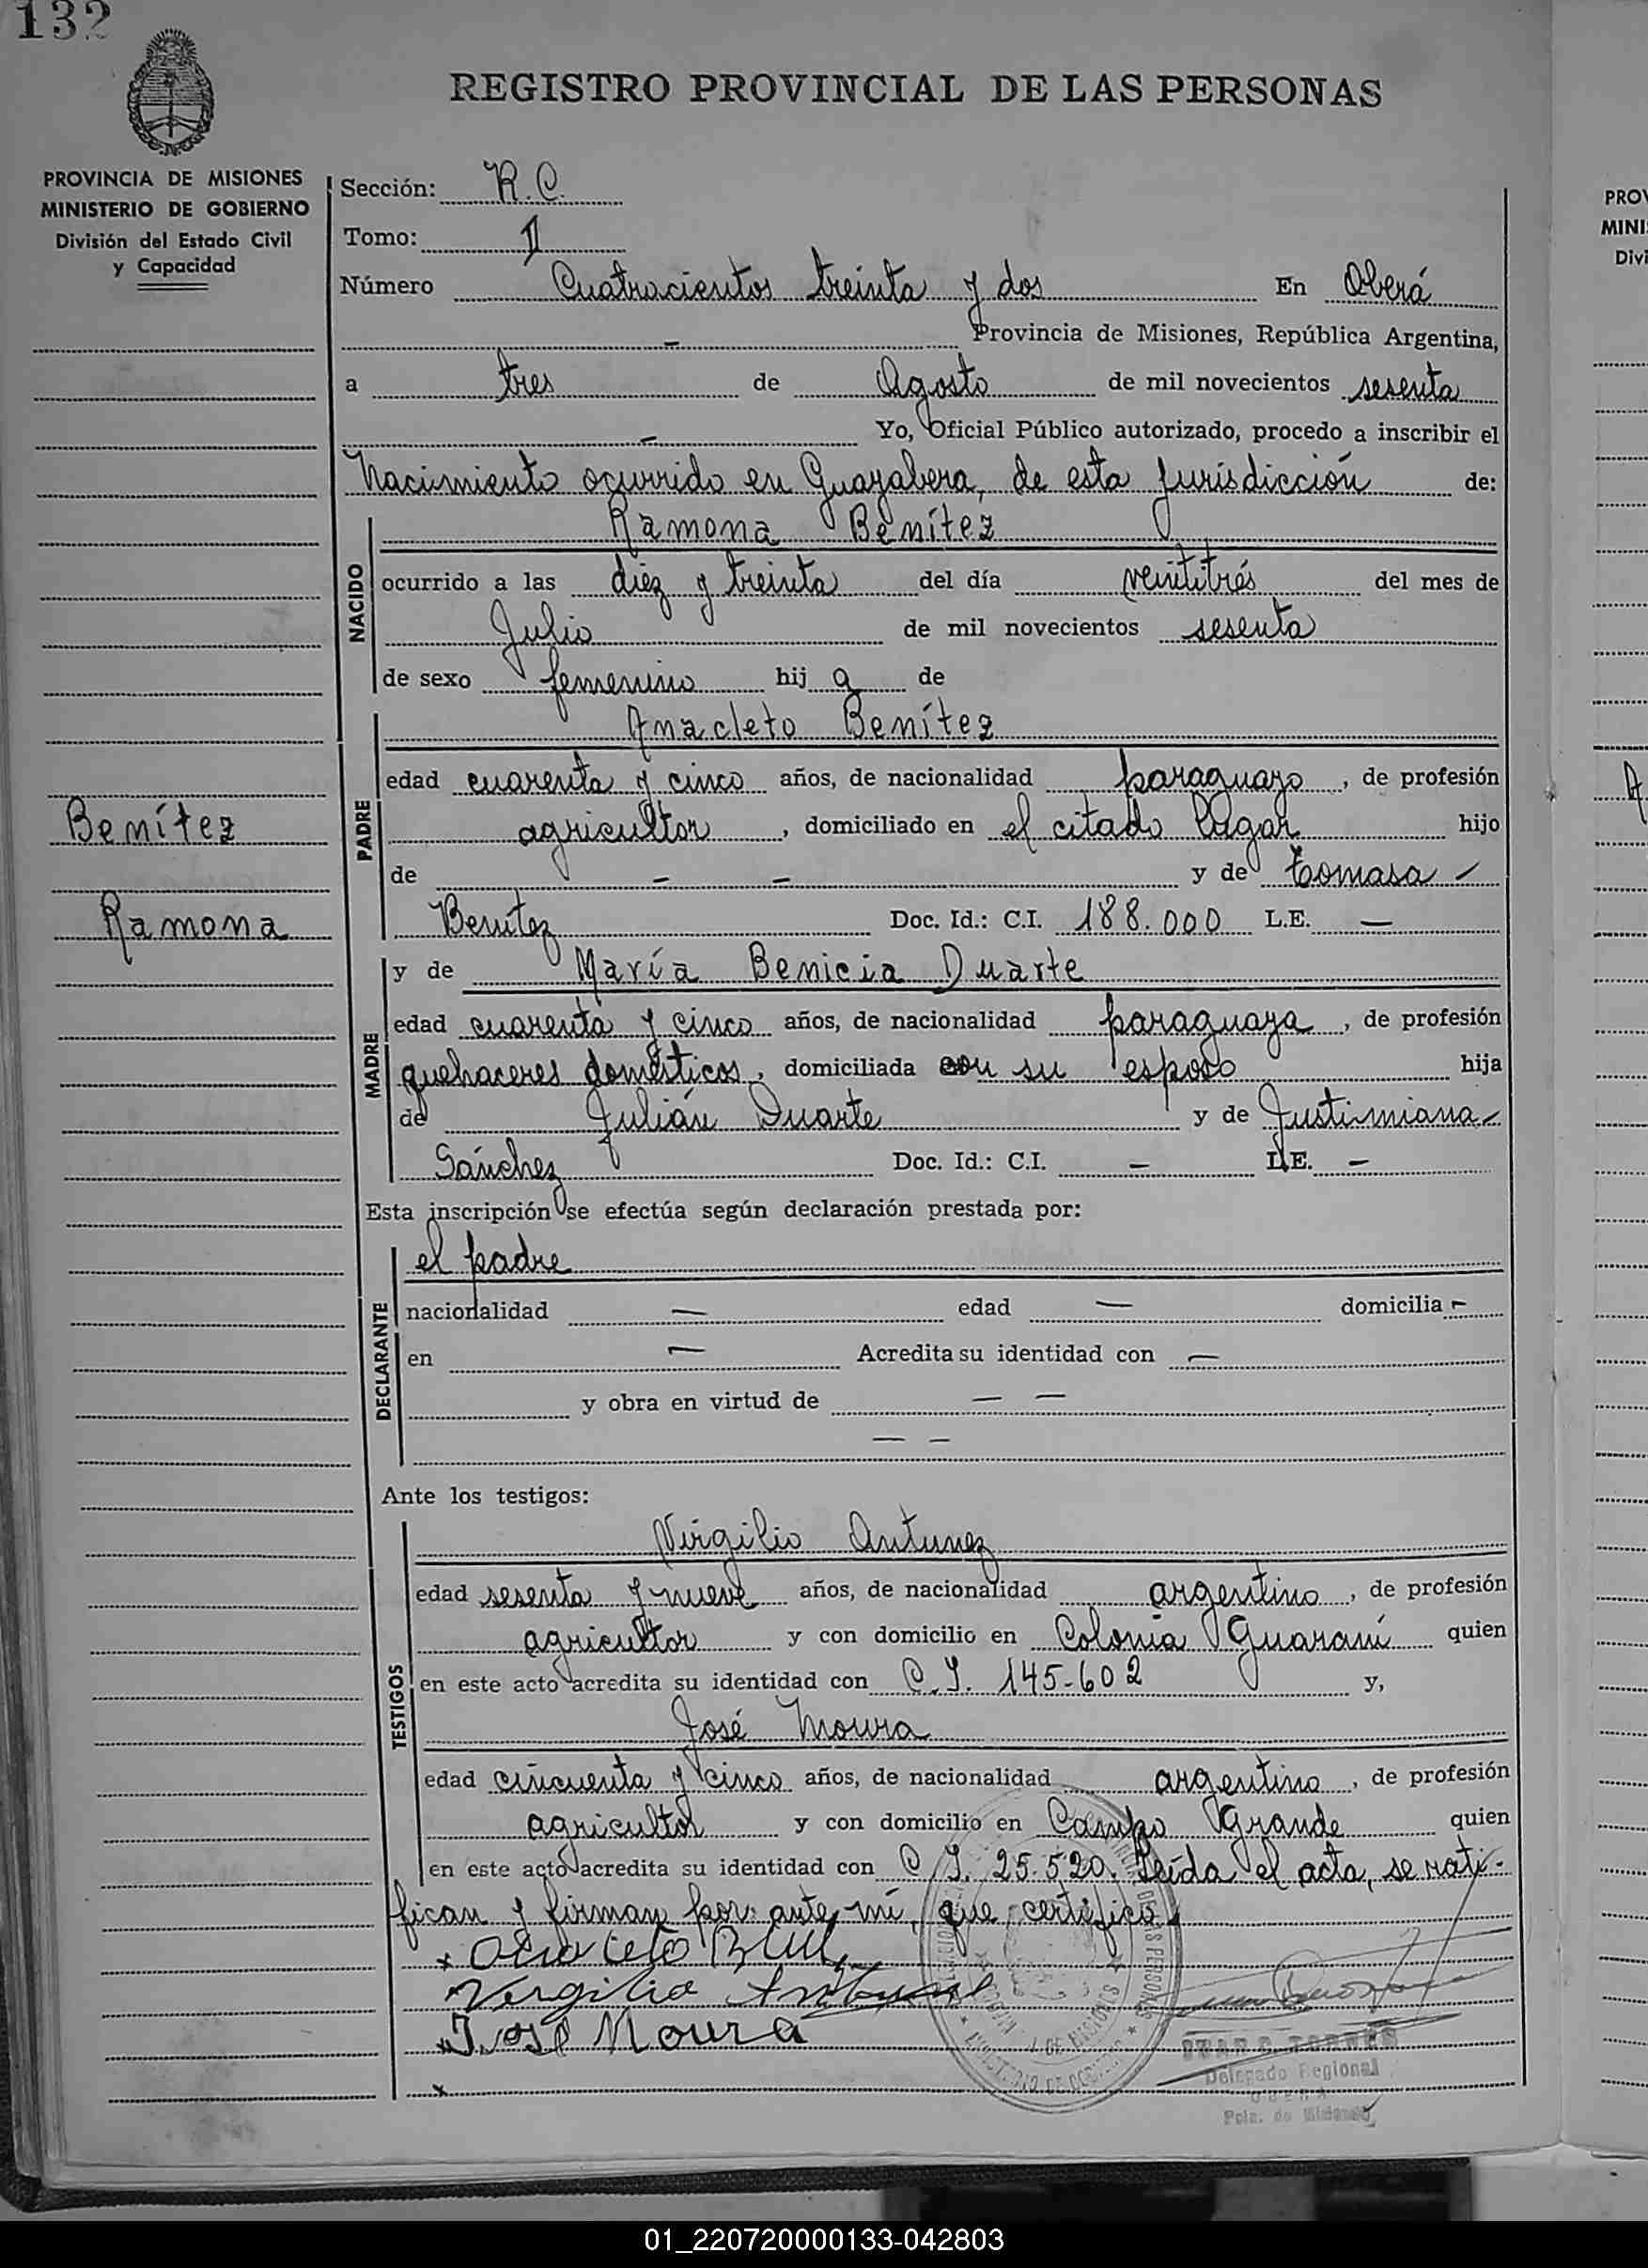 132
REGISTRO PROVINCIAL DE LAS PERSONAS
PROVINCIA DE MISIONES
MINISTERIO DE GOBIERNO
División del Estado Civil
y Capacidad
Sección: R.C.
Tomo: II
Número Cuatrocientos treinta y dos En Oberá
— Provincia de Misiones, República Argentina,
a tres de Agosto de mil novecientos sesenta
— Yo, Oficial Público autorizado, procedo a inscribir el
Nacimiento ocurrido en Guayabera, de esta Jurisdicción de:
NACIDO
Ramona Benítez
ocurrido a las diez y treinta del día veintitrés del mes de
Julio de mil novecientos sesenta
de sexo femenino hij a de
PADRE
Anacleto Benítez
edad cuarenta y cinco años, de nacionalidad paraguayo, de profesión
agricultor, domiciliado en el citado lugar hijo
de — — y de Tomasa —
Benitez Doc. Id.: C.I. 188.000 L.E. —
Benítez
Ramona
MADRE
y de María Benicia Duarte
edad cuarenta y cinco años, de nacionalidad paraguaya, de profesión
quehaceres domésticos, domiciliada con su esposo hija
de Julián Duarte y de Justimiana —
Sánchez Doc. Id.: C.I. — L.E. —
Esta inscripción se efectúa según declaración prestada por:
DECLARANTE
el padre
nacionalidad — edad — domicilia —
en — Acredita su identidad con —
y obra en virtud de — —
— —
Ante los testigos:
TESTIGOS
Virgilio Antunez
edad sesenta y nueve años, de nacionalidad argentino, de profesión
agricultor y con domicilio en Colonia Guaraní quien
en este acto acredita su identidad con C.I. 145-602 y,
José Moura
edad cincuenta y cinco años, de nacionalidad argentino, de profesión
agricultor y con domicilio en Campo Grande quien
en este acto acredita su identidad con C.I. 25.520. Leída el acta, se rati-
fican y firman por ante mí, que certifico.
x
Vergilio
x José Moura
x
JUAN C. TORRES
Delegado Regional
OBERA
Pcia. de Misiones
PROV
MINI
Divi
A
01_220720000133-042803